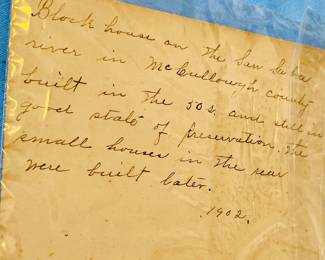 Block house on the San Saba
river in McCullough county
built in the 50s, and still in
good state of preservation. The
small houses in the rear
were built later.
1902.